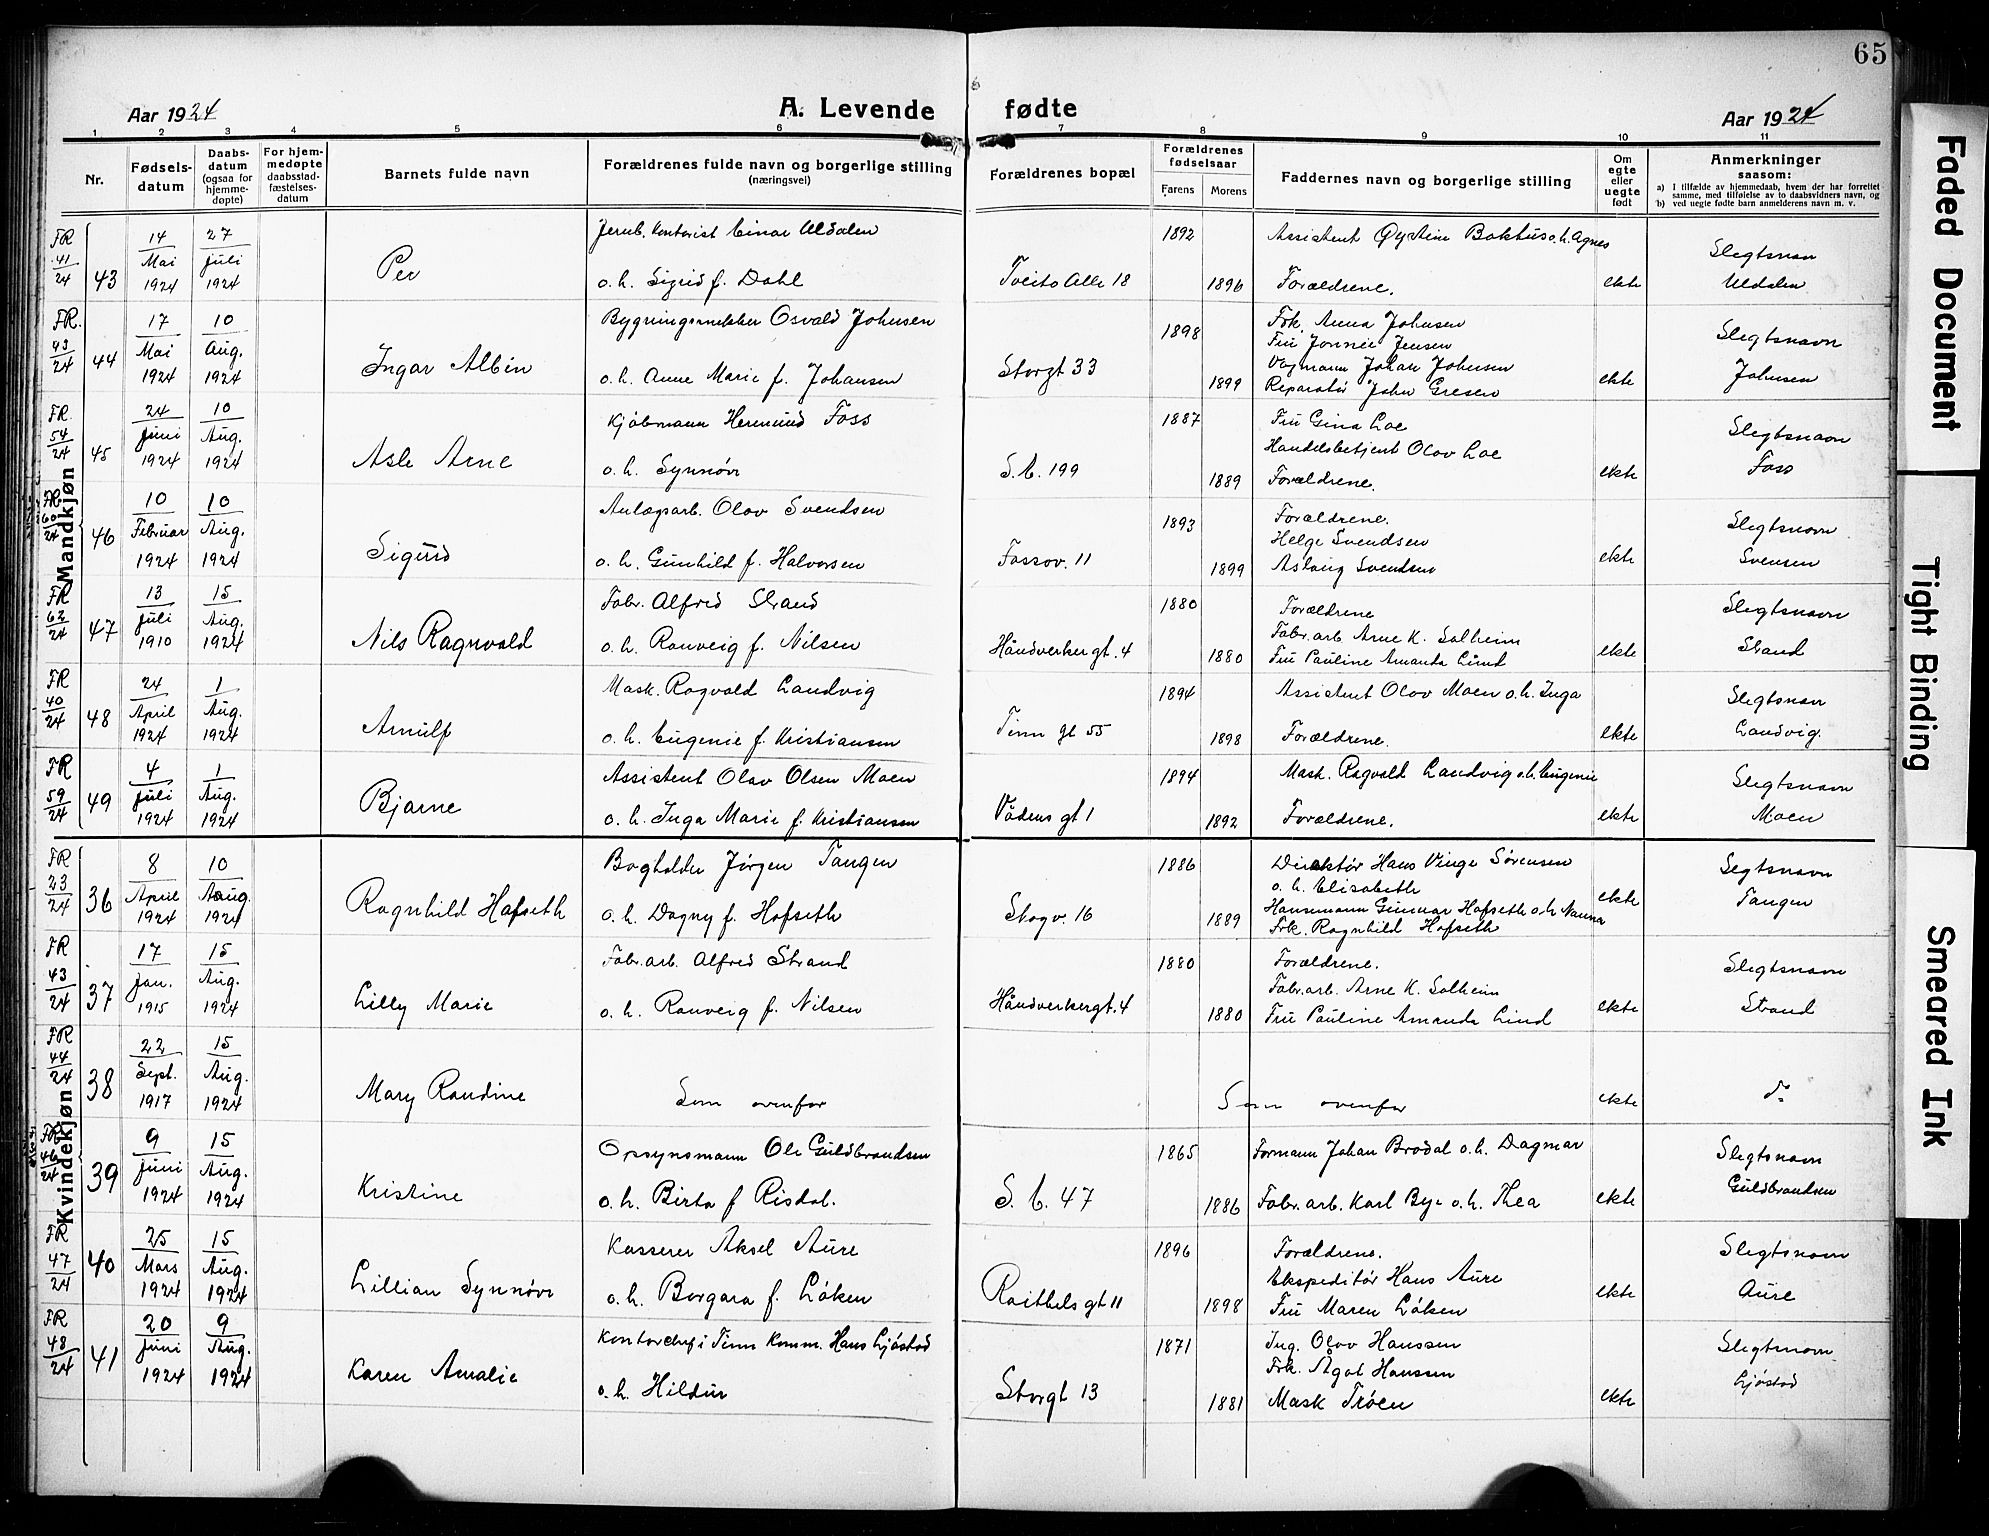 65
Aar 1924
A. Levende fødte
Aar 1924
1 2 3 4 5 6 7 8 9 10 11
Nr.
Fødsels-
datum
Daabs-
datum
(ogsaa for
hjemme-
døpte)
For hjem-
medøpte
daabsstad-
fæstelses-
datum
Barnets fulde navn
Forældrenes fulde navn og borgerlige stilling
(næringsvei)
Forældrenes bopæl
Forældrenes
fødselsaar
Farens Morens
Faddernes navn og borgerlige stilling
Om
egte
eller
uegte
født
Anmerkninger
saasom:
a) I tilfælde av hjemmedaab, hvem der har forrettet
samme, med tilføielse av to daabsvidners navn, og
b) ved uegte fødte barn anmelderens navn m. v.
Mandkjøn
FR 41/24 43
14 Mai 1924
27 Juli 1924
Per
Jernb. kontorist Einar Uldalen
o. h. Sigrid f. Dahl
Tveito Alle 18
1892 1896
Assistent Øystein Bakhus o. h. Agnes
Forældrene.
ekte
Slegtsnavn
Uldalen
FR. 43/24 44
17 Mai 1924
10 Aug. 1924
Ingar Albin
Bygningsnekker Osvald Johnsen
o. h. Anne Marie f. Johansen
Storgt 33
1898 1899
Frk. Anna Johnsen
Fru Jonnie Jensen
Johan Johnsen
Reparatør John Gresen
ekte
Slegtsnavn
Johnsen
FR 54/24 45
24 Juni 1924
10 Aug. 1924
Asle Arne
Kjøbmann Hermund Foss
o. h. Synnøve
S. b. 199
1887 1889
Fru Gina Loe
Handelsbetjent Olav Loe
Forældrene.
ekte
Slegtsnavn
Foss
FR 60/24 46
10 Februar 1924
10 Aug. 1924
Sigurd
Anlægsarb. Olav Svendsen
o. h. Gunhild f. Halvorsen
Fossov. 11
1893 1899
Forældrene.
Helge Svendsen
Aslaug Svendsen
ekte
Slegtsnavn
Svensen
FR 62/24 47
13 Juli 1910
15 Aug. 1924
Nils Ragnvald
Fabr. Alfred Strand
o. h. Ranveig f. Nilsen
Håndverkergt. 4
1880 1880
Forældrene
Fabr. arb Arne K. Solheim
Fru Pauline Amanda Lund
ekte
Slegtsnavn
Strand
FR 40/24 48
24 April 1924
1 Aug. 1924
Arnulf
Mask. Ragvald Landvig
o. h. Eugenie f. Kristiansen
Tinn gt 55
1894 1898
Assistent Olav Moen o. h. Inga
Forældrene.
ekte
Slegtsnavn
Landvig.
FR 59/24 49
4 Juli 1924
1 Aug. 1924
Bjarne
Assistent Olav Olsen Moen
o. h. Inga Marie f. Kristiansen
Vådens gt 1
1894 1892
Mask. Ragvald Landvig o. h. Eugenie
Forældrene.
ekte
Slegtsnavn
Moen
Kvindekjøn
FR 23/24 36
8 April 1924
10 Aug. 1924
Ragnhild Hafseth
Bogholder Jørgen Tangen
o. h. Dagny f. Hofseth
Skogv. 16
1886 1889
Direktør Hans Vinge Sørensen
o. h. Elisabeth
Gunnar Hofseth o. h. Nanna
Frk. Ragnhild Hofseth
ekte
Segtsnavn
Tangen
FR 43/24 37
17 Jan. 1915
15 Aug. 1924
Lilly Marie
Fabr. arb. Alfred Strand
o. h. Ranveig f. Nilsen
Håndverkergt. 4
1880 1880
Forældrene.
Fabr. arb. Arne K. Solheim
Fru Pauline Amanda Lind
ekte
Slegtsnavn
Strand
FR 44/24 38
22 Sept. 1917
15 Aug. 1924
Mary Randine
Som ovenfor
Som ovenfor
ekte
do
FR 46/24 39
9 Juni 1924
15 Aug. 1924
Kristine
Opsynsmann Ole Guldbrandsen
o. h. Birta f Risdal.
S. b. 47
1865 1886
Formann Johan Brødal o. h. Dagmar
Fabr. arb. Karl Bye o. h. Thea
ekte
Slegtsnavn
Guldbrandsen
FR 47/24 40
25 Mars 1924
15 Aug. 1924
Lillian Synnøve
Kasserer Aksel Aure
o. h. Borgara f. Løken
Raithels gt 11
1896 1898
Forældrene.
Ekspeditør Hans Aure
Fru Maren Løken
ekte
Slegtsnavn
Aure
FR 48/24 41
20 Juni 1924
9 Aug. 1924
Karen Amalie
Kontorchef i Tinn Komm. Hans Ljøstad
o. h. Hildur
Storgt 13
1871 1881
Ing. Olav Hanssen
Frk. Ågot Hanssen
Mask Trøen
ekte
Slegtsnavn
Ljøstad
Faded Document
Tight Binding
Smeared Ink